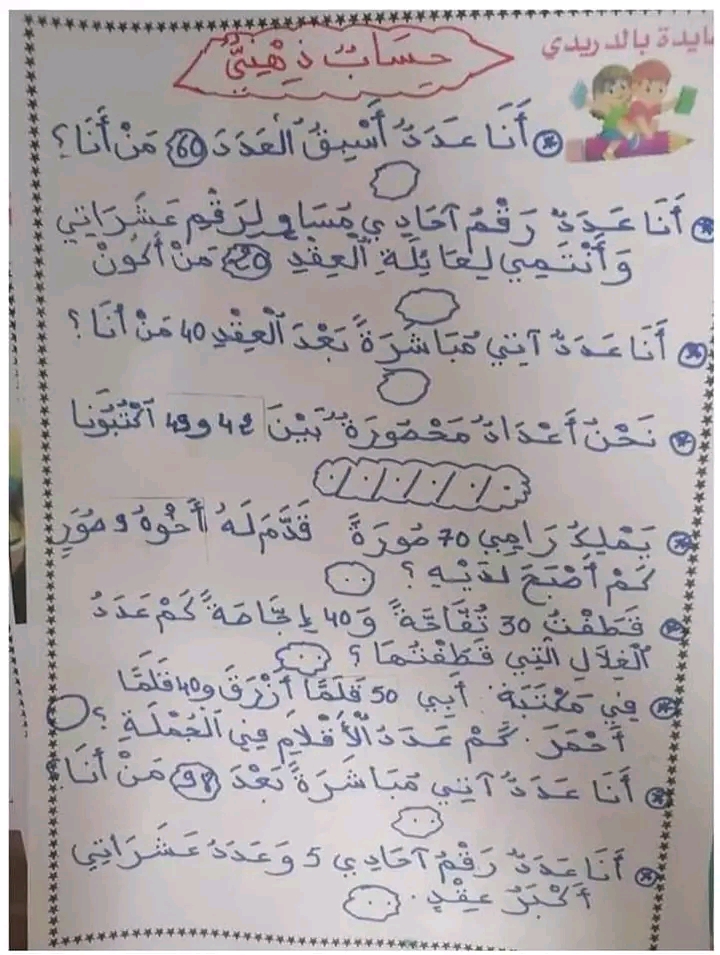 عايدة بالدريدي
حِسَابٌ ذِهْنِيٌّ
أَنَا عَدَدٌ أَسْبِقُ الْعَدَدَ 60 مَنْ أَنَا؟
أَنَا عَدَدٌ رَقْمُ آحَادِي مُسَاوٍ لِرَقْمِ عَشَرَاتِي
وَأَنْتَمِي لِعَائِلَةِ الْعِقْدِ 20 مَنْ أَكُونُ
أَنَا عَدَدٌ آتِي مُبَاشَرَةً بَعْدَ الْعِقْدِ 40 مَنْ أَنَا؟
نَحْنُ أَعْدَادٌ مَحْصُورَةٌ بَيْنَ 42 و 49 اُكْتُبُونَا
يَمْلِكُ رَامِي 70 صُورَةً قَدَّمَ لَهُ أَخُوهُ 9 صُوَرٍ
كَمْ أَصْبَحَ لَدَيْهِ؟
قَطَفْتُ 30 تُفَّاحَةً وَ 40 إِجَّاصَةً كَمْ عَدَدُ
الْغِلَالِ الَّتِي قَطَفْتُهَا؟
فِي مَكْتَبَةِ أَبِي 50 قَلَمًا أَزْرَقَ و 40 قَلَمًا
أَحْمَرَ. كَمْ عَدَدُ الْأَقْلَامِ فِي الْجُمْلَةِ؟
أَنَا عَدَدٌ آتِي مُبَاشَرَةً بَعْدَ 98 مَنْ أَنَا؟
أَنَا عَدَدٌ رَقْمُ آحَادِي 5 وَعَدَدُ عَشَرَاتِي
أَكْبَرُ عِقْدٍ.